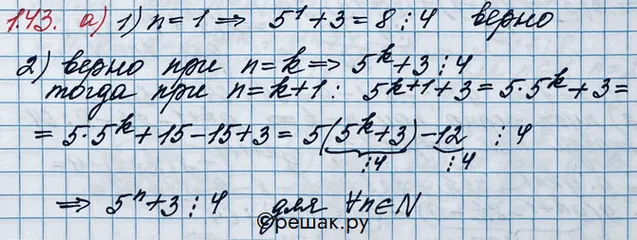 1.43. а) 1) n=1 ⇒ 5¹+3=8 ⋮ 4 верно
2) верно при n=k ⇒ 5ᵏ+3 ⋮ 4
тогда при n=k+1: 5ᵏ⁺¹+3=5·5ᵏ+3=
=5·5ᵏ+15-15+3=5(5ᵏ+3)-12 ⋮ 4
⋮4 ⋮4
⇒ 5ⁿ+3 ⋮ 4 для ∀n∈N
©решак.ру